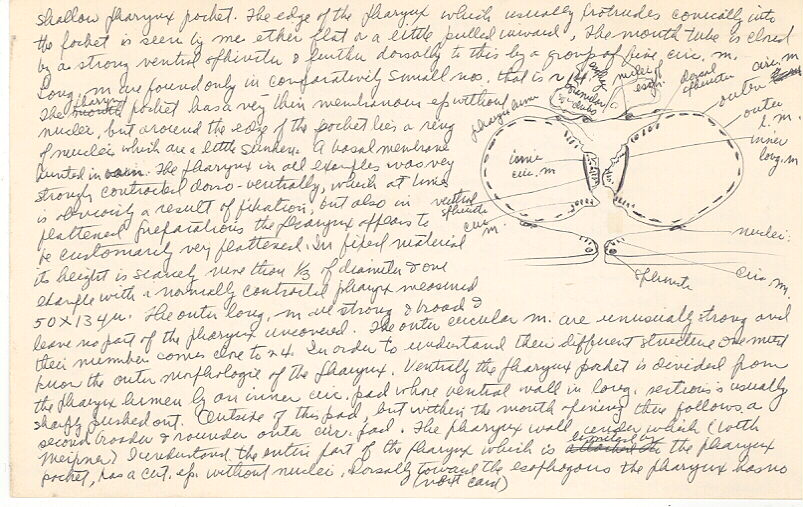 shallow pharynx pocket. The edge of the pharynx which usually protrudes conically into
the pocket is seen by me ether flat or a little pulled inward. The mouth tube is closed
by a strong ventral sphincter & further dorsally to this by a group of fine circ. m.
Long. m are found only in comparatively small nos. that is
The pharynx pocket has a very thin membranous ep without
nuclei, but around the edge of the pocket lies a ring
of nuclei which are a little sunken. A basal membrane
hunted in vain. The pharynx in all examples was very
strongly contracted dorso-ventrally, which at times
is obviously a result of fixation, but also in
flattened preparations the pharynx appears to
be customarily very flattened. In fixed material
its height is scarcely more than 1/3 of diameter & one
example with a normally contracted pharynx measured
50 X 134µ. The outer long. m are strong & broad &
leave no part of the pharynx uncovered. The outer circular m. are unusually strong and
their number comes close to 24. In order to understand their different structure one must
know the outer morphologie of the pharynx. Ventrally the pharynx pocket is divided from
the pharynx lumen by an inner circ. pad whose ventral wall in long. sections is usually
sharply pushed out. Outside of this pad, but within the mouth opening there follows a
second broader & rounder outer circ. pad. The pharynx wall under which (with
Meixner) I understand the entire part of the pharynx which is the pharynx
pocket, has a cert. ep. without nuclei. Dorsally toward the esophagous the pharynx has no
(next card)
nuclei of
esoph.
dorsal
sphincter
circ. m
outer
outer
l. m.
inner
long. m
pharynx lumen
inner
circ. m
ventral
sphincter
circ
m.
nuclei
circ. m.
sphincter